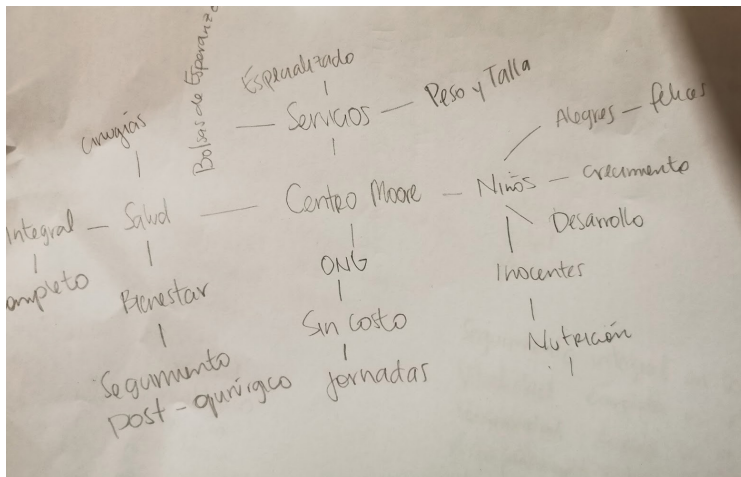 Bolsas de Esperanza
Especializado
Servicios
Peso y Talla
Cirugías
Alegres
felices
Integral
Salud
Centro Moore
Niños
Crecimiento
Desarrollo
ompleto
Bienestar
ONG
Inocentes
Sin costo
Nutrición
Seguimiento
post-quirúrgico
Jornadas